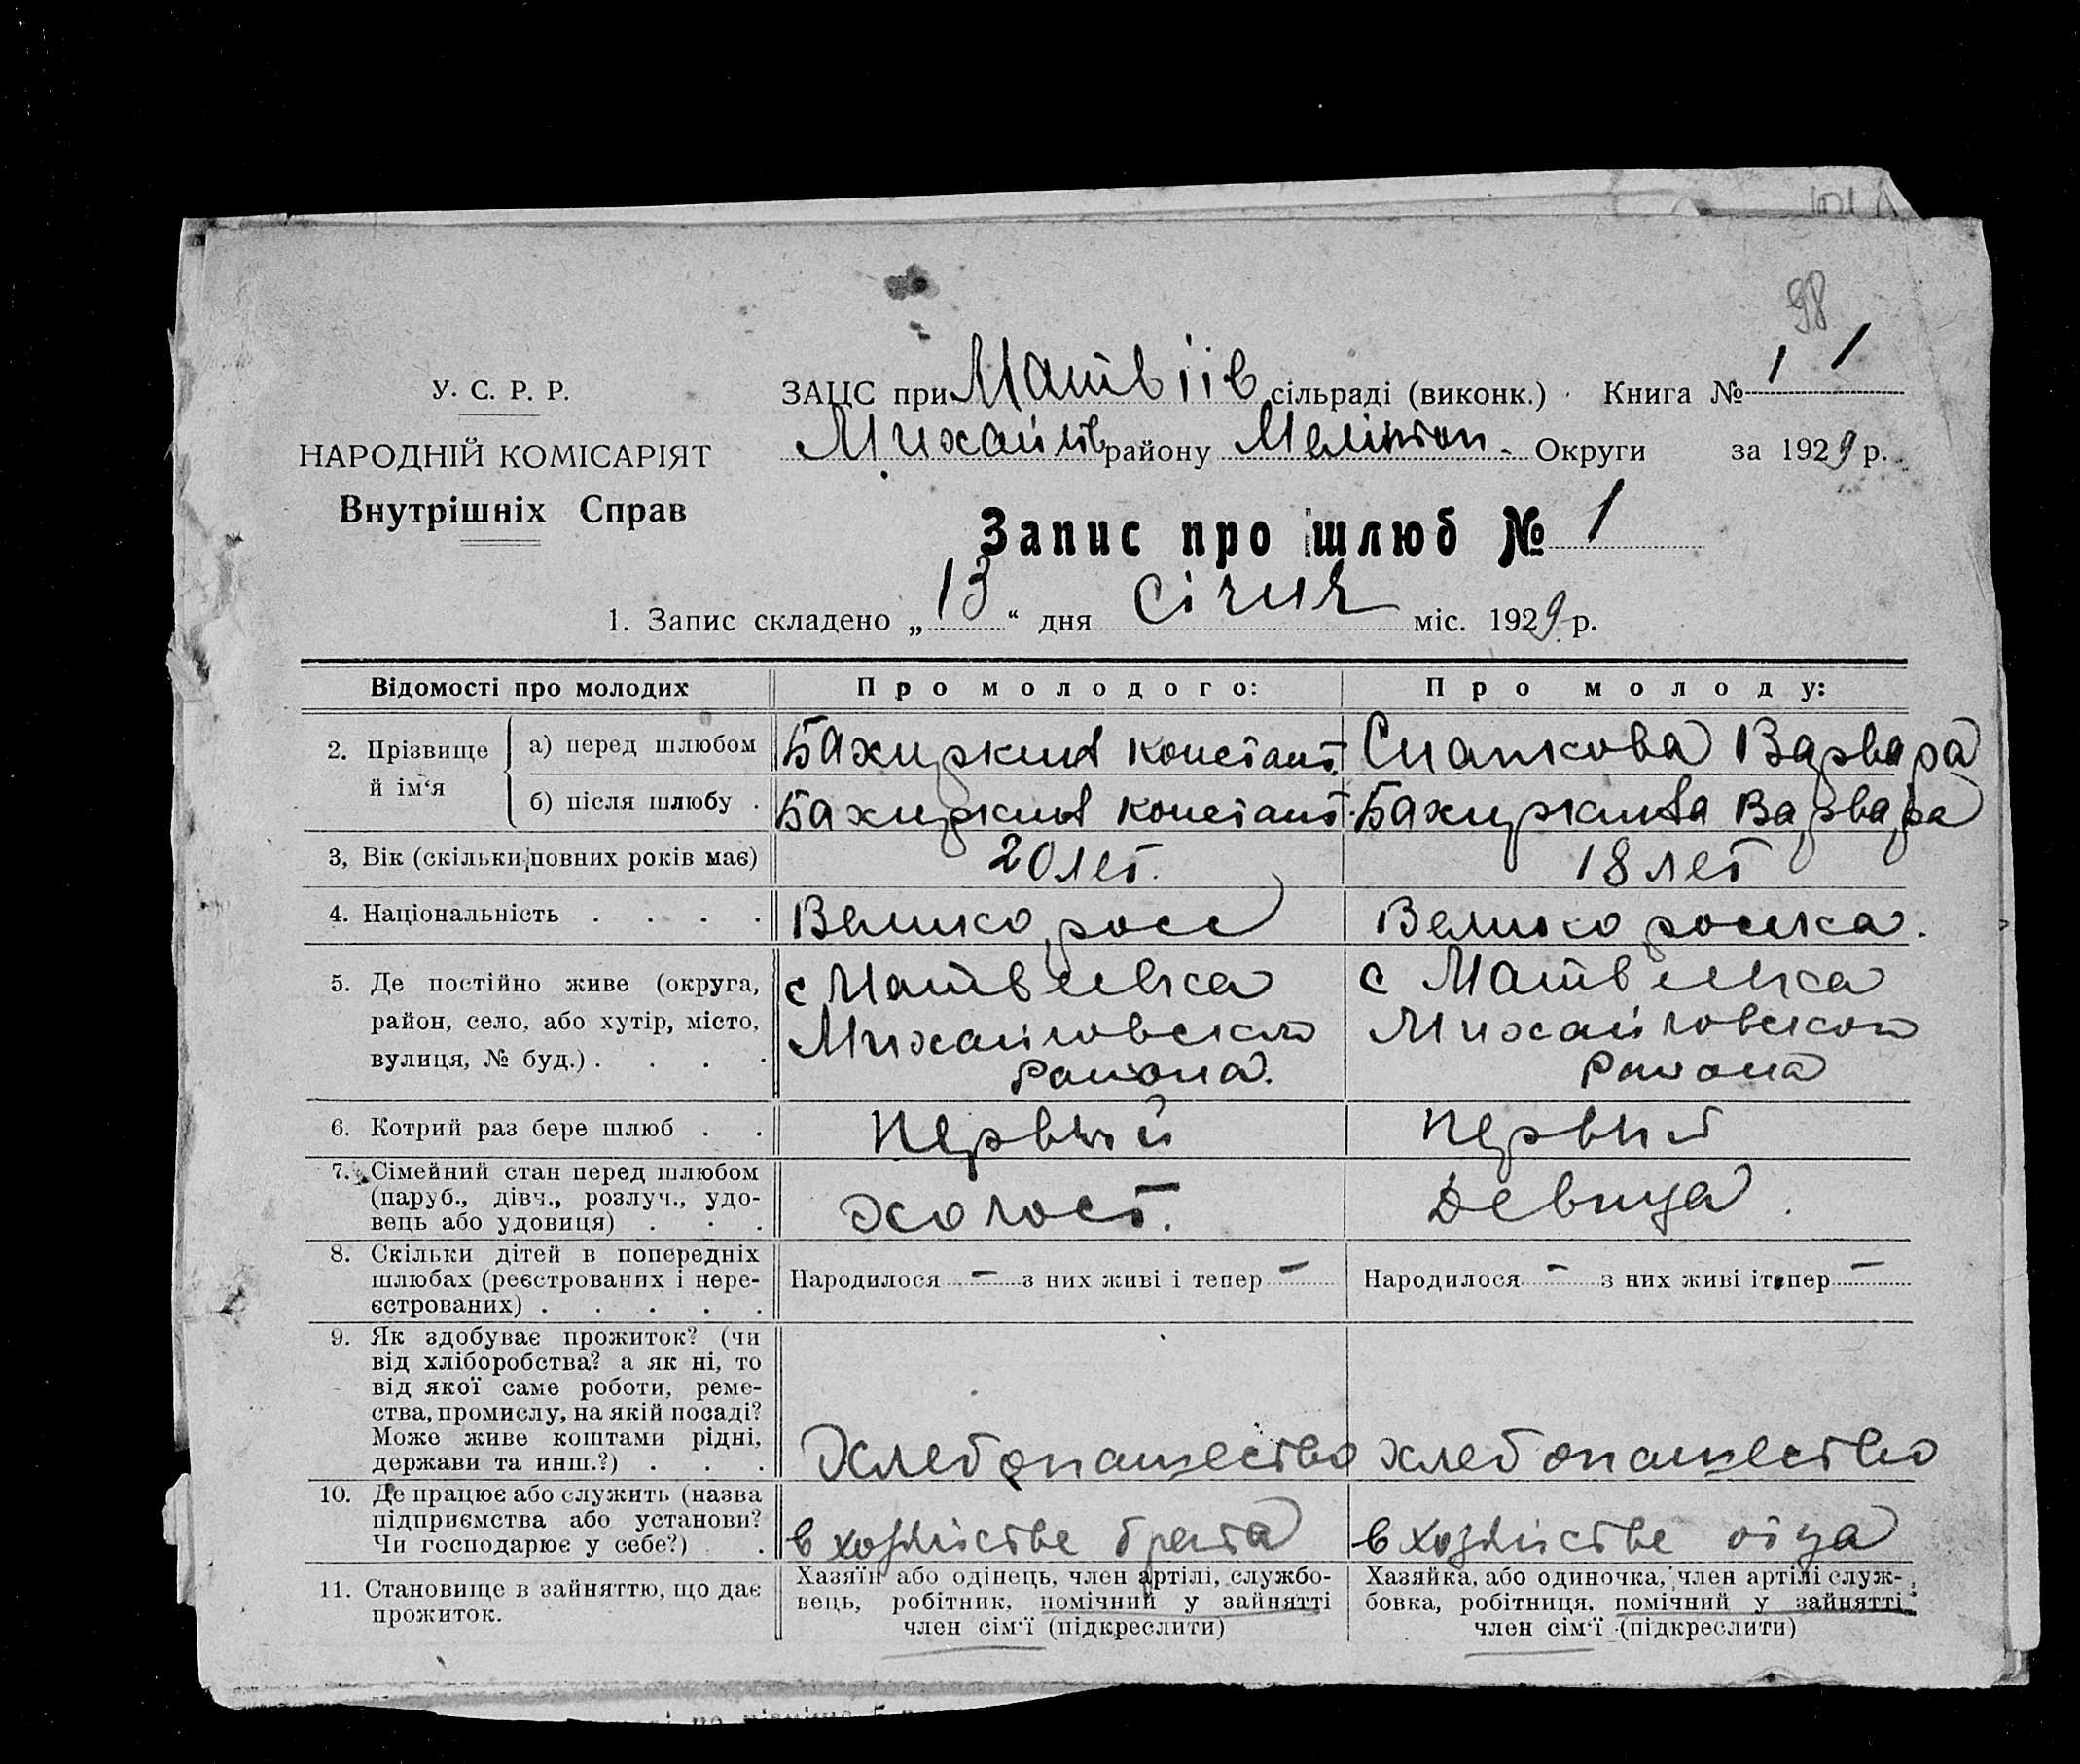 98
У. С. Р. Р.
НАРОДНІЙ КОМІСАРІЯТ
Внутрішніх Справ
ЗАЦС при Матвіїв сільраді (виконк.) Книга № 1 1
Михайлів району Мелітоп. Округи за 1929 р.
Запис про шлюб № 1
1. Запис складено „13“ дня січня міс. 1929 р.
Відомості про молодих
Про молодого:
Про молоду:
2. Прізвище й ім‘я
а) перед шлюбом
Варвара
б) після шлюбу .
Варвара
3, Вік (скільки повних років має)
20 лет.
18 лет
4. Національність . . . .
Великоросс
Великоросска.
5. Де постійно живе (округа,
район, село, або хутір, місто,
вулиця, № буд.) . . . .
с Матвеевка
Михайловского
района.
с Матвеевка
Михайловского
района
6. Котрий раз бере шлюб . .
Первый
Первый
7. Сімейний стан перед шлюбом
(паруб., дівч., розлуч., удо-
вець або удовиця) . . .
Холост.
Девица.
8. Скільки дітей в попередніх
шлюбах (реєстрованих і нере-
єстрованих) . . . . .
Народилося — з них живі і тепер —
Народилося — з них живі і тепер —
9. Як здобуває прожиток? (чи
від хліборобства? а як ні, то
від якої саме роботи, реме-
ства, промислу, на якій посаді?
Може живе коштами рідні,
держави та инш.?) . . .
Хлебопашество
хлебопашество
10. Де працює або служить (назва
підприємства або установи?
Чи господарює у себе?) . .
в хозяйстве брата
в хозяйстве отца
11. Становище в зайняттю, що дає
прожиток.
Хазяїн або одінець, член артілі, службо-
вець, робітник, помічний у зайнятті
член сім‘ї (підкреслити)
Хазяйка, або одиночка, член артілі служ-
бовка, робітниця, помічний у зайнятті
член сім‘ї (підкреслити)